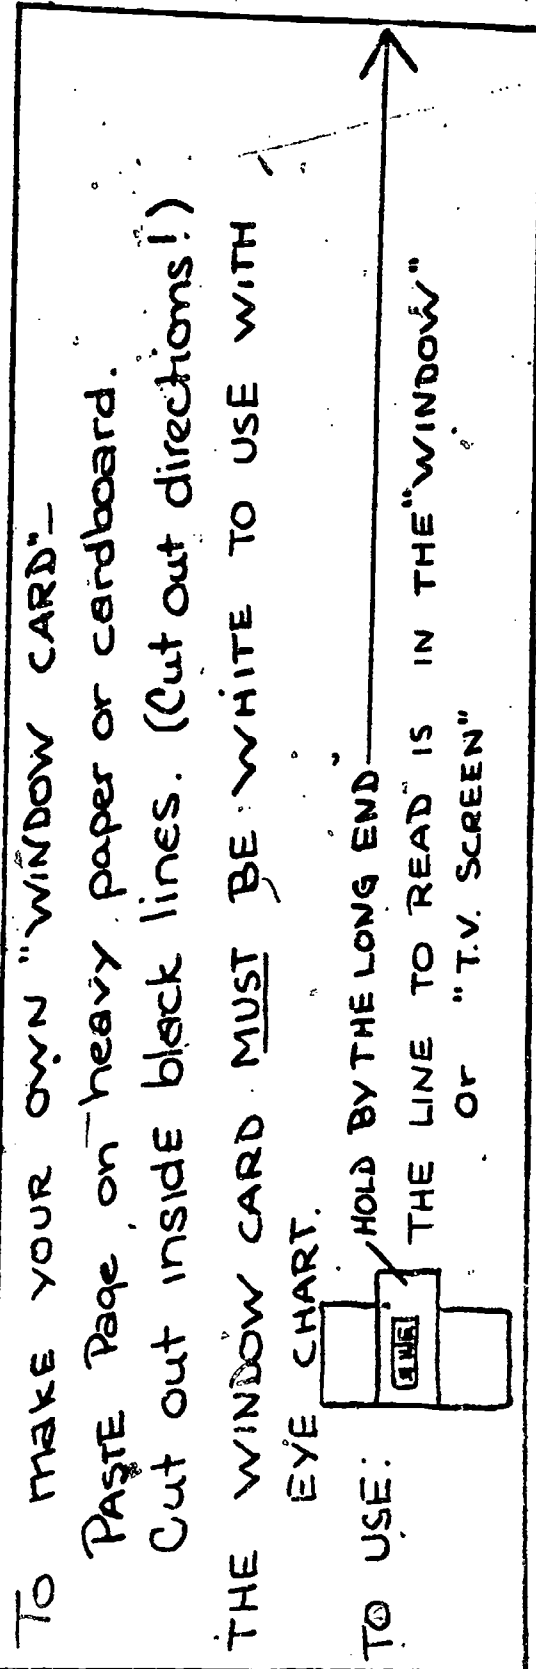 To make YOUR OWN "WINDOW CARD"—
PASTE Page on heavy paper or cardboard.
Cut out insidE black lines. (Cut out directions!)
THE WINDOW CARD MUST BE WHITE TO USE WITH
EYE CHART.
TO USE:
HOLD BY THE LONG END
THE LINE TO READ IS IN THE "WINDOW"
Or "T.V. SCREEN"